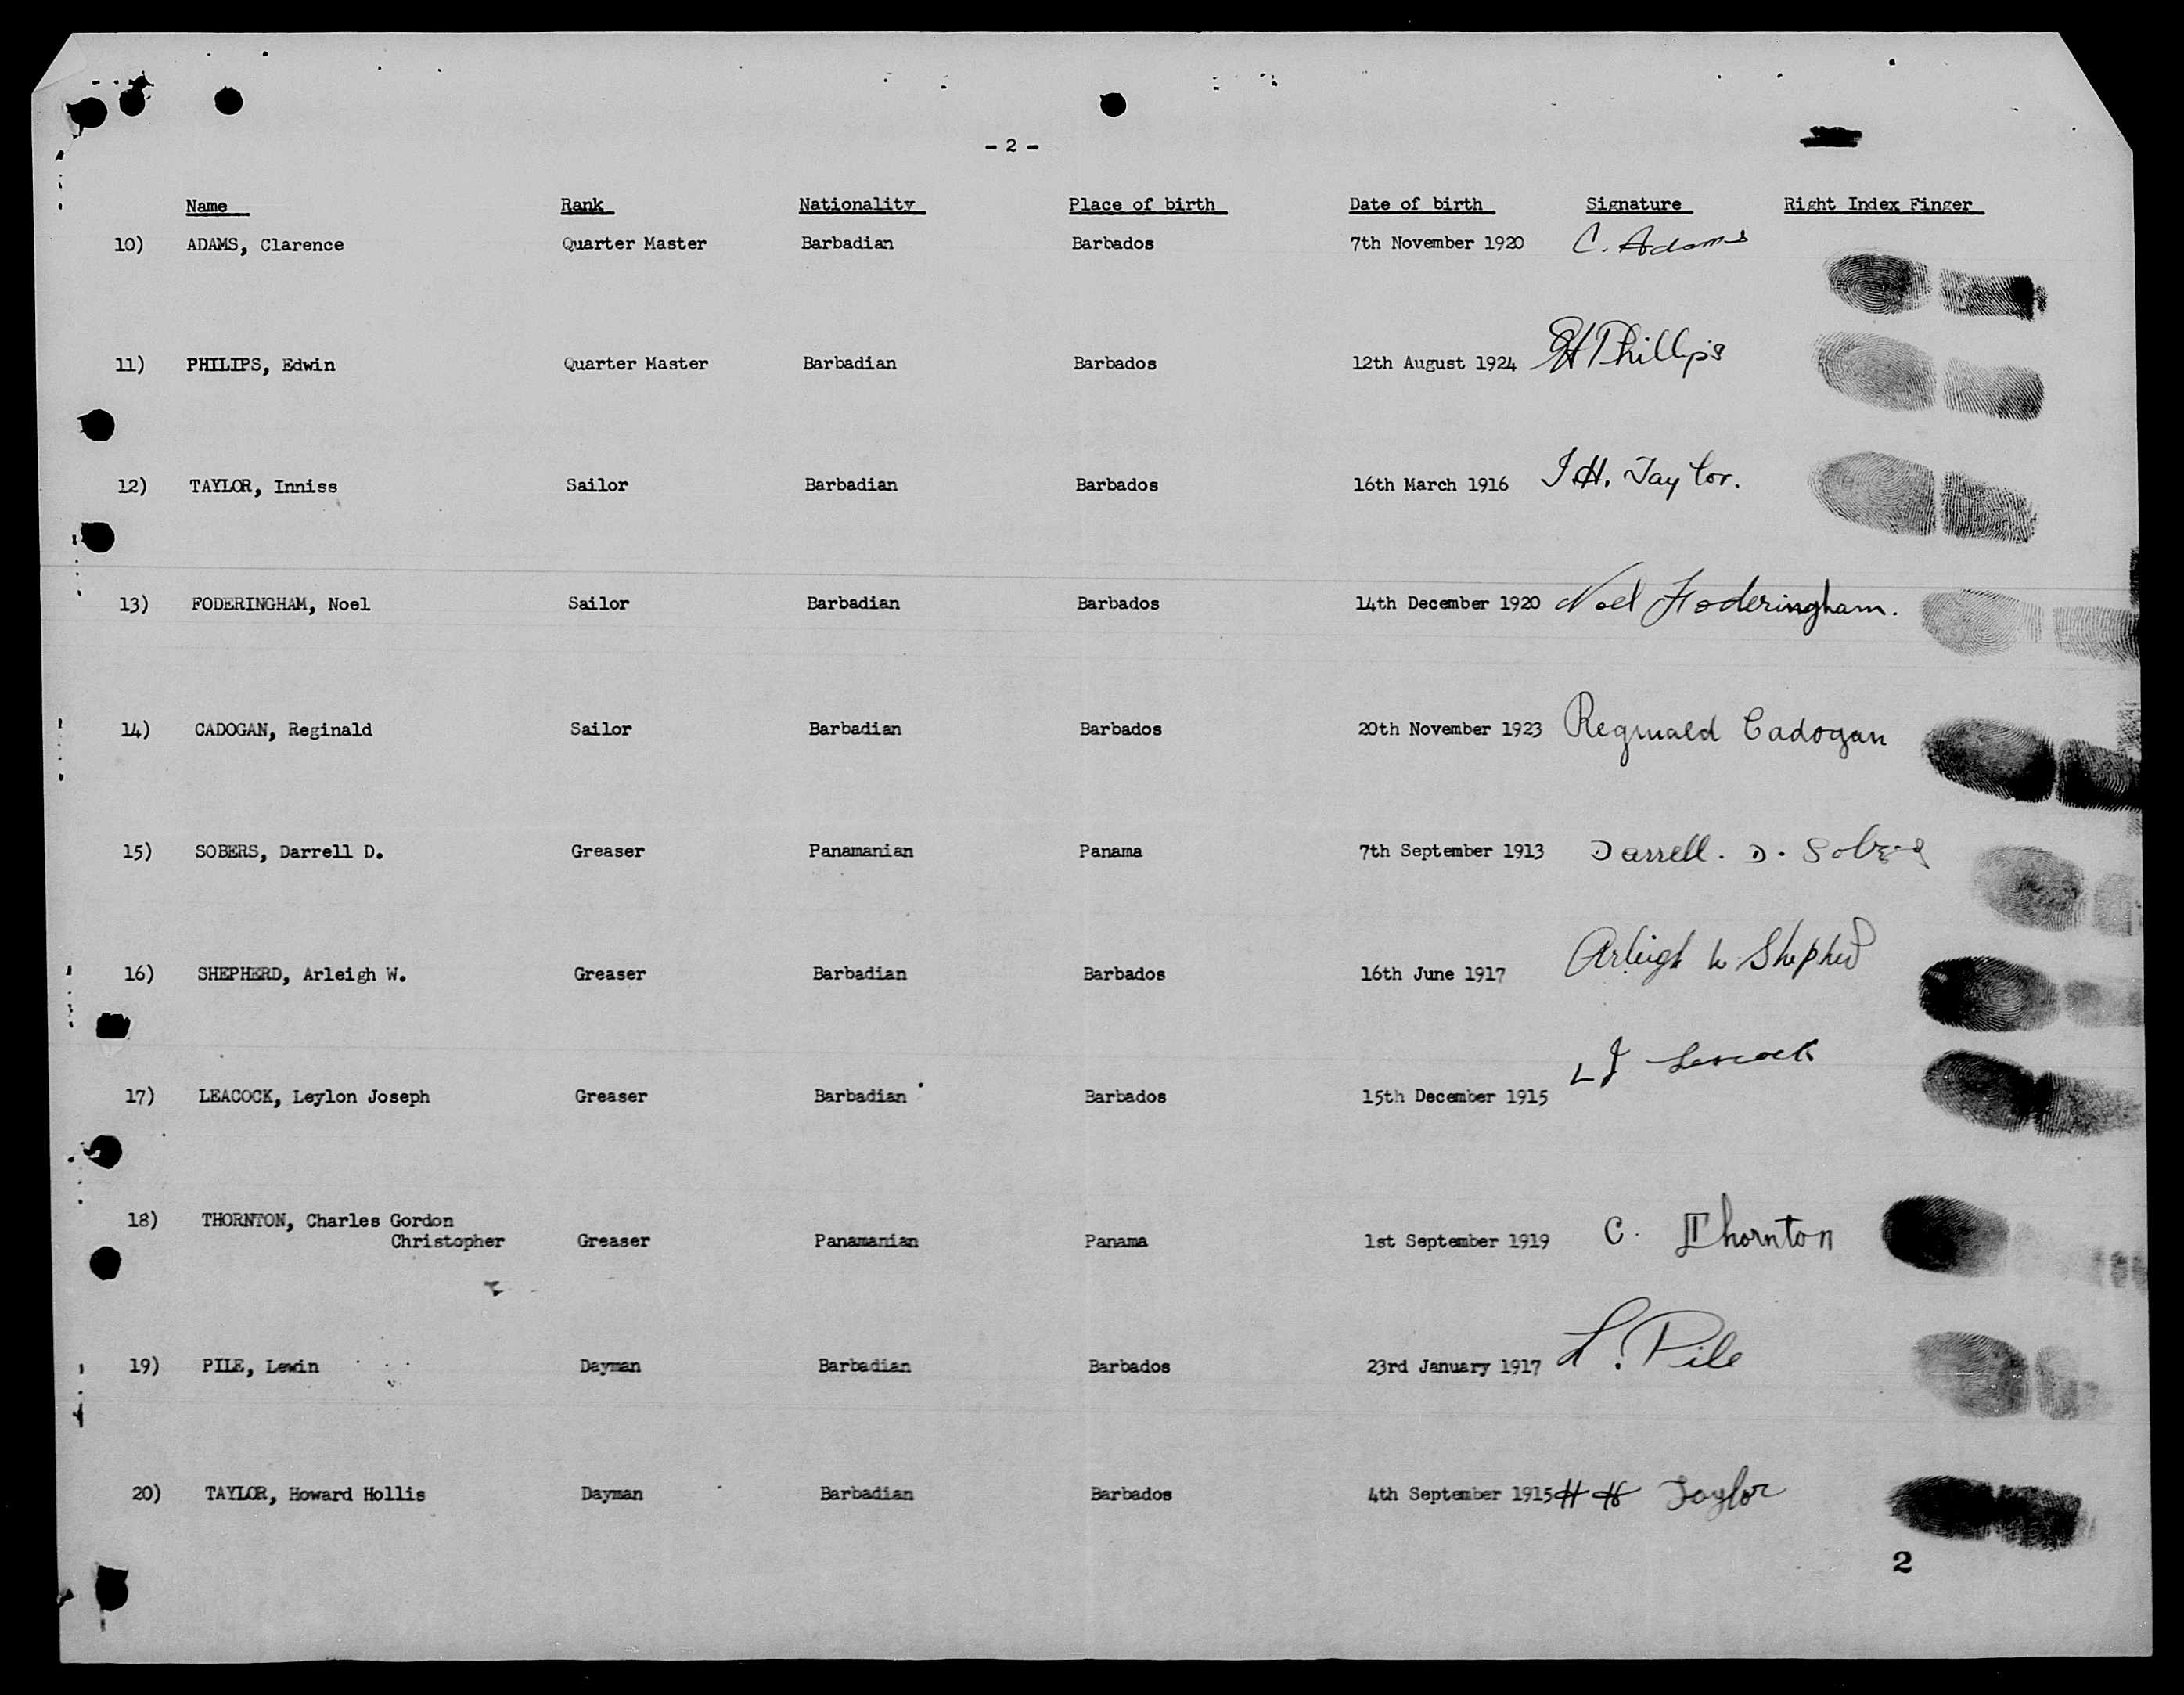 - 2 -
Name Rank Nationality Place of birth Date of birth Signature Right Index Finger
10) ADAMS, Clarence Quarter Master Barbadian Barbados 7th November 1920 C. Adams
11) PHILIPS, Edwin Quarter Master Barbadian Barbados 12th August 1924 EH Phillips
12) TAYLOR, Inniss Sailor Barbadian Barbados 16th March 1916 I.H. Taylor.
13) FODERINGHAM, Noel Sailor Barbadian Barbados 14th December 1920 Noel Foderingham.
14) CADOGAN, Reginald Sailor Barbadian Barbados 20th November 1923 Reginald Cadogan
15) SOBERS, Darrell D. Greaser Panamanian Panama 7th September 1913 Darrell. D. Sobers
16) SHEPHERD, Arleigh W. Greaser Barbadian Barbados 16th June 1917 Arleigh W Shepherd
17) LEACOCK, Leylon Joseph Greaser Barbadian Barbados 15th December 1915 LJ Leacock
18) THORNTON, Charles Gordon
Christopher Greaser Panamanian Panama 1st September 1919 C. Thornton
19) PILE, Lewin Dayman Barbadian Barbados 23rd January 1917 L. Pile
20) TAYLOR, Howard Hollis Dayman Barbadian Barbados 4th September 1915 H H Taylor
2